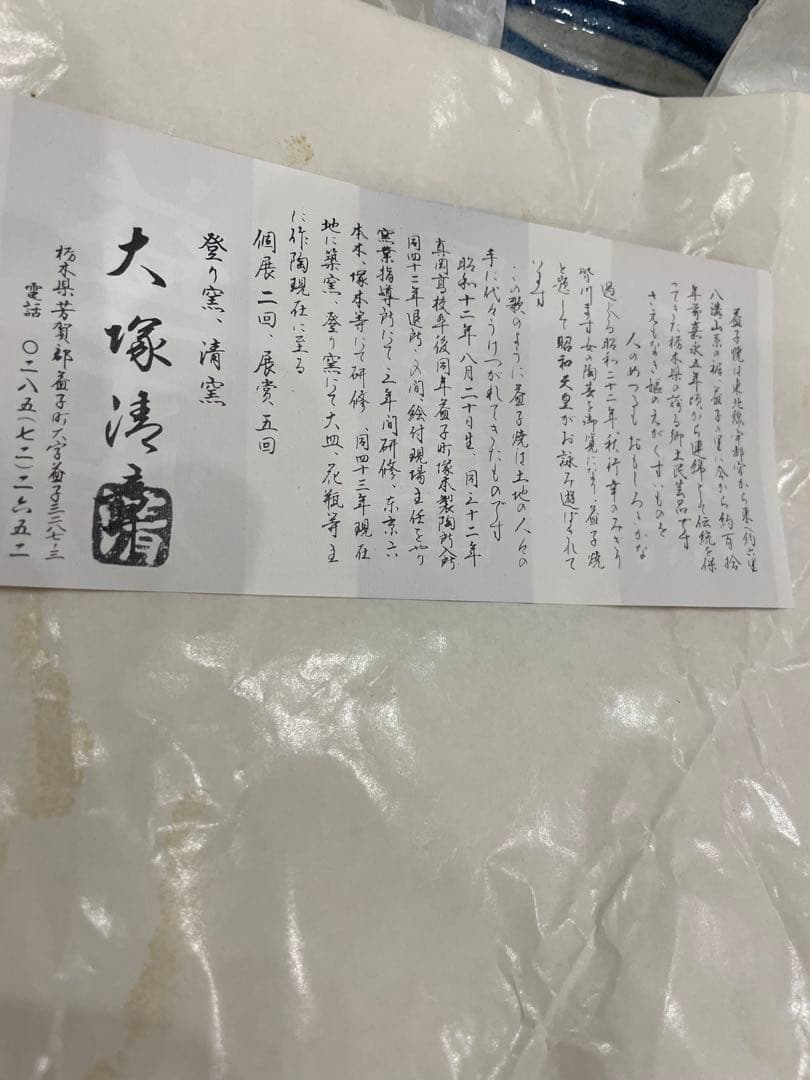 益子焼は東北線宇都宮から東へ約六里
八溝山系の裾、益子の里に今から約百拾
年前嘉永五年頃から連綿として伝統を保
ってきた栃木県の誇る郷土民芸品です
人のめつるも おもしろきかな
さえもなき嫗のえがくすゑものを
過ぐる昭和二十二年、秋行幸のみぎり
皆川ます女の陶芸を御覧になり、益子焼
と題して昭和天皇がお詠み遊ばされて
います
この歌のように益子焼は土地の人々の
手に代々うけつがれてきたものです
昭和十二年八月二十日生、同三十二年
真岡高校卒後同年益子町塚本製陶所入所
同四十二年退所、又間、絵付現場主任をやり
窯業指導所にて三年間研修、東京六
本木、塚本等にて研修、同四十三年現在
地に築窯、登り窯にて大皿、花瓶等主
に作陶現在に至る
個展二回、展賞、五回
登り窯、清窯
大塚清章
栃木県芳賀郡益子町大字益子三三八七・三
電話 〇二八五(七二)二六五二